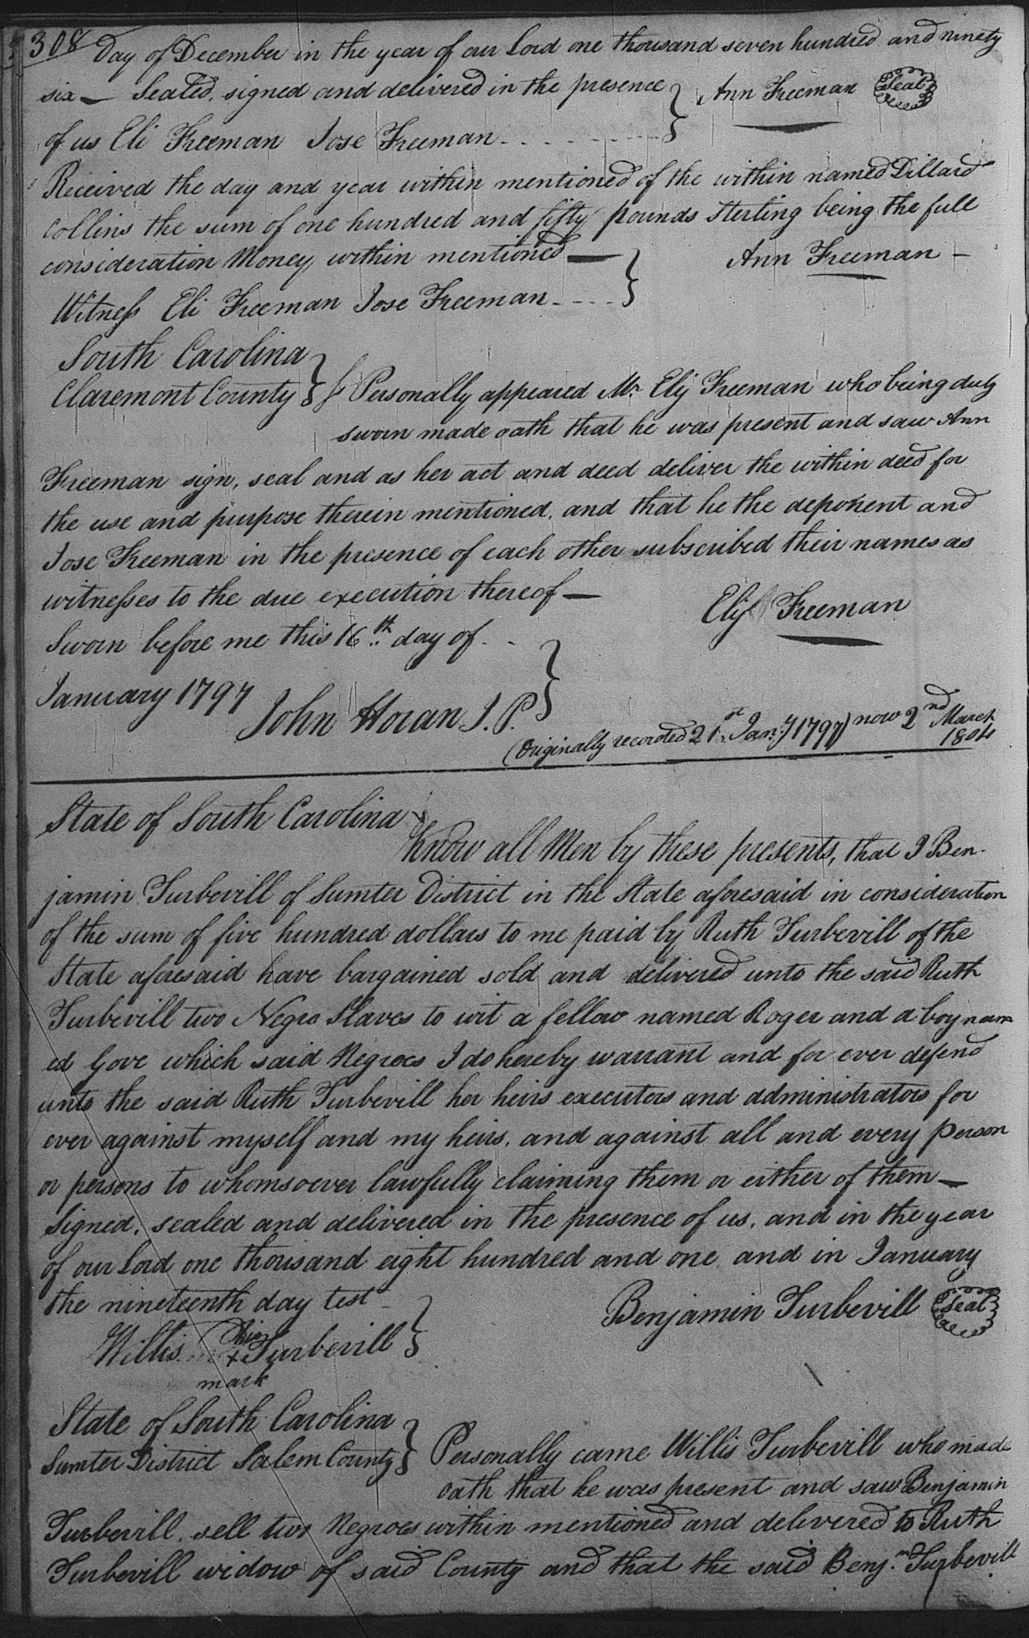 308 Day of December in the year of our Lord one thousand seven hundred and ninety
six — Sealed, signed and delivered in the presence } Ann Freeman Seal
of us Eli Freeman Jose Freeman
Received the day and year within mentioned of the within named Dillard
Collins the sum of one hundred and fifty pounds Sterling being the full
consideration Money within mentioned — } Ann Freeman —
Witness Eli Freeman Jose Freeman
South Carolina
Claremont County } Personally appeared Mr. Elij Freeman who being duly
sworn made oath that he was present and saw Ann
Freeman sign, seal and as her act and deed deliver the within deed for
the use and purpose therein mentioned, and that he the deponent and
Jose Freeman in the presence of each other subscribed their names as
witnesses to the due execution thereof — Elij Freeman
Sworn before me this 16th day of
January 1797 John Horan J. P. }
(Originally recorded 21st Jany 1797) now 2nd March
1804
State of South Carolina
Know all Men by these presents, that I Ben-
jamin Turbevill of Sumter District in the State aforesaid in consideration
of the sum of five hundred dollars to me paid by Ruth Turbevill of the
State aforesaid have bargained sold and delivered unto the said Ruth
Turbevill two Negro Slaves to wit a fellow named Roger and a boy nam
ed Gove which said Negroes I do hereby warrant and for ever defend
unto the said Ruth Turbevill her heirs executers and administrators for
ever against myself and my heirs, and against all and every person
or persons to whomsoever lawfully claiming them or either of them —
Signed, sealed and delivered in the presence of us, and in the year
of our Lord one thousand eight hundred and one and in January
the nineteenth day test } Benjamin Turbevill Seal
Willis his x Turbevill
mark
State of South Carolina
Sumter District Salem County } Personally came Willis Turbevill who made
oath that he was present and saw Benjamin
Turbevill sell two Negroes within mentioned and delivered to Ruth
Turbevill widow of said County and that the said Benjmn Turbevill